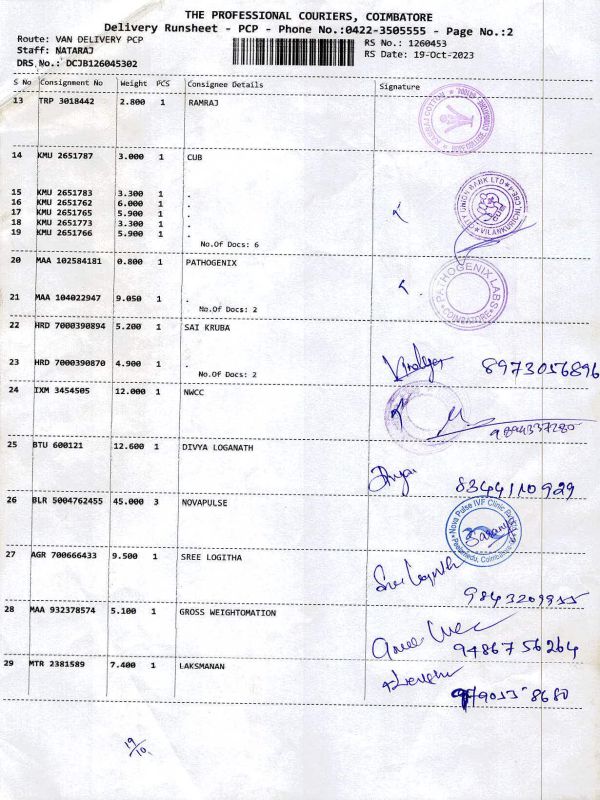 THE PROFESSIONAL COURIERS, COIMBATORE
Delivery Runsheet - PCP - Phone No.:0422-3505555 - Page No.:2
Route: VAN DELIVERY PCP
RS No.: 1260453
Staff: NATARAJ
RS Date: 19-Oct-2023
DRS No.: DCJB126045302
S No Consignment No Weight PCS Consignee Details Signature
13 TRP 3018442 2.800 1 RAMRAJ
14 KMU 2651787 3.000 1 CUB
15 KMU 2651783 3.300 1 .
16 KMU 2651762 6.000 1 .
17 KMU 2651765 5.900 1 .
18 KMU 2651773 3.300 1 .
19 KMU 2651766 5.900 1 .
No.Of Docs: 6
CITY UNION BANK LTD
20 MAA 102584181 0.800 1 PATHOGENIX
21 MAA 104022947 9.050 1 .
No.Of Docs: 2
PATHOGENIX LABS
COIMBATORE
22 HRD 7000390894 5.200 1 SAI KRUBA
23 HRD 7000390870 4.900 1 .
No.Of Docs: 2
8973056896
24 IXM 3454505 12.000 1 NWCC
9894337280
25 BTU 600121 12.600 1 DIVYA LOGANATH
8344110929
26 BLR 5004762455 45.000 3 NOVAPULSE
Nova Pulse IVF Clinic
27 AGR 700666433 9.500 1 SREE LOGITHA
Sree Logith
9843209955
28 MAA 932378574 5.100 1 GROSS WEIGHTOMATION
9486756264
29 MTR 2381589 7.400 1 LAKSMANAN
19/10